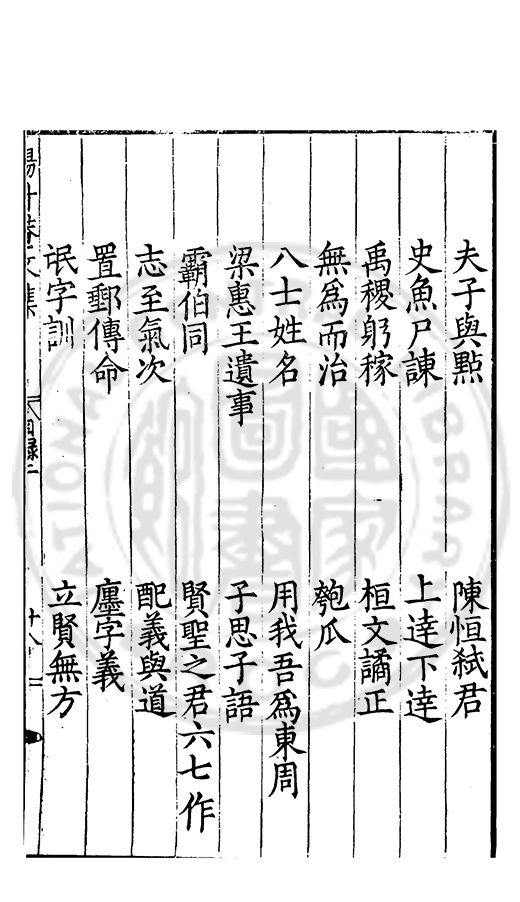 夫子與點 陳恒弒君
史魚尸諫 上達下達
禹稷躬稼 桓文譎正
無爲而治 匏瓜
八士姓名 用我吾爲東周
梁惠王遺事 子思子語
霸伯同 賢聖之君六七作
志至氣次 配義與道
置郵傳命 廛字義
氓字訓 立賢無方
目錄二
十八